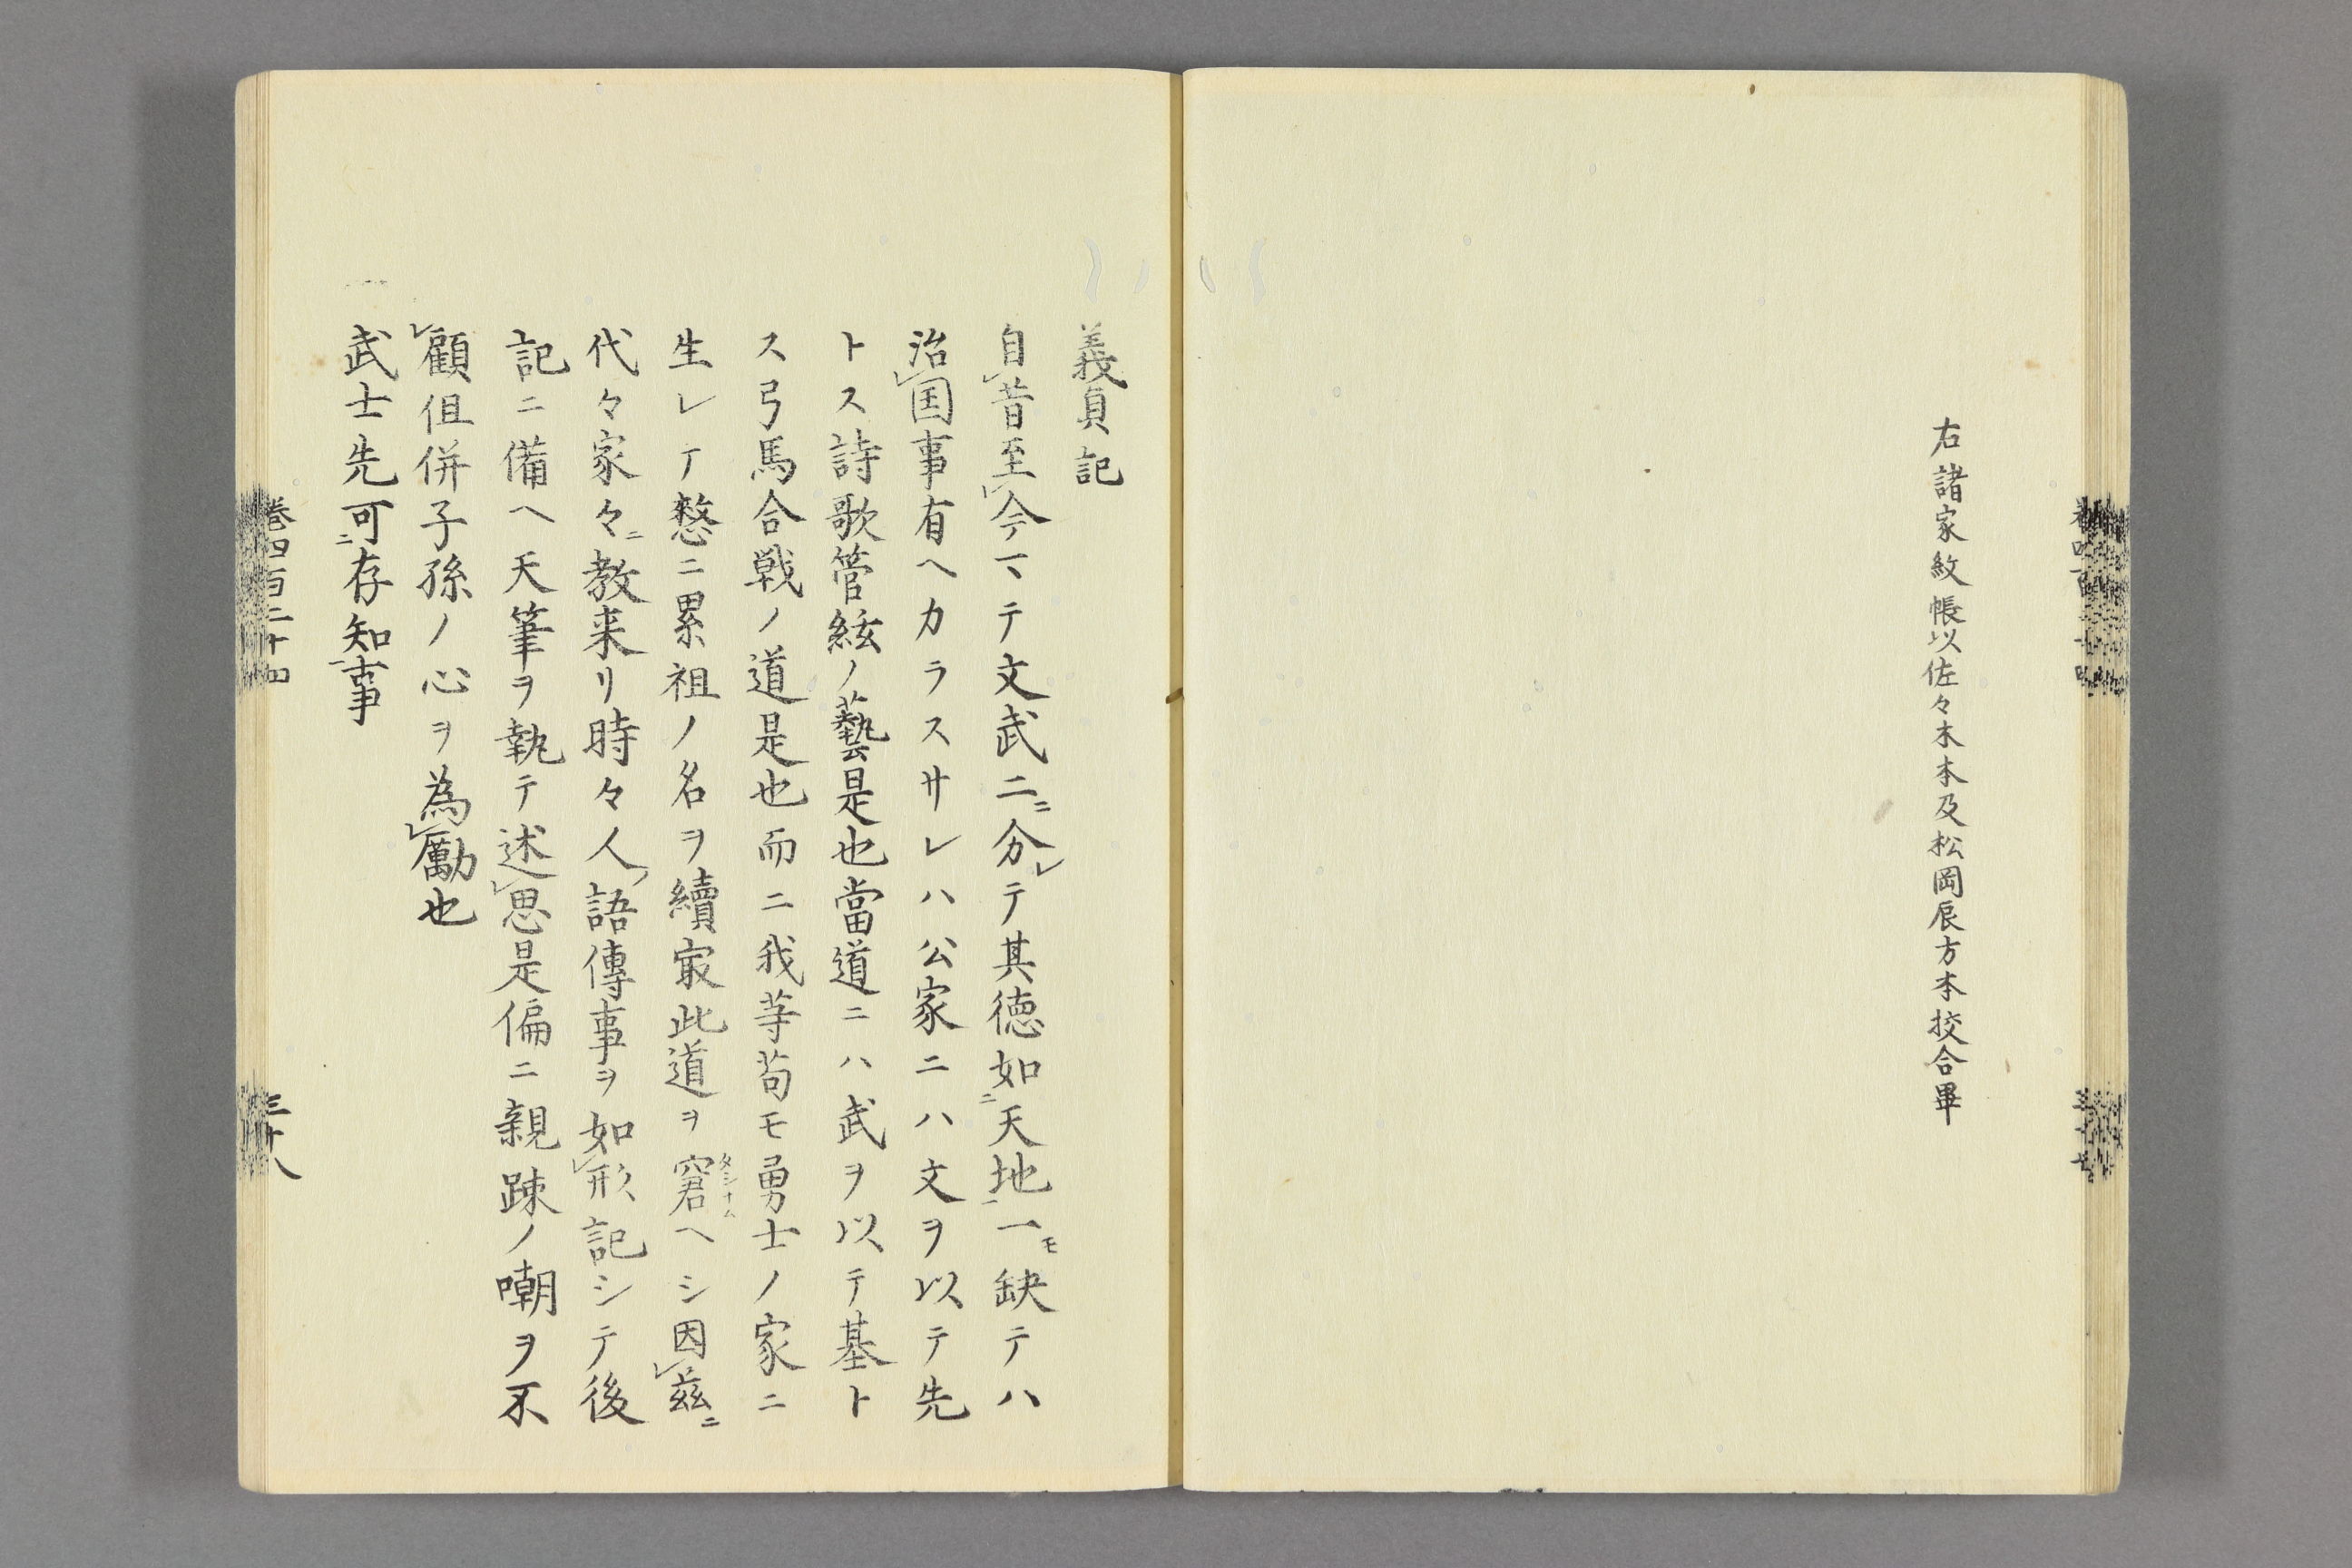 右諸家紋帳以佐々木本及松岡辰方本挍合畢
義貞記
自㆑昔至㆑今マテ文武二ニ分㆑テ其徳如㆓天地㆒一モ缺テハ
治㆑国事有ヘカラスサレハ公家ニハ文ヲ以テ先
トス詩歌管絃ノ藝是也當道ニハ武ヲ以テ基ト
ス弓馬合戦ノ道是也而ニ我等苟モ勇士ノ家ニ
生レテ憗ニ累祖ノ名ヲ續㝡此道ヲ窘ヘシ因㆑茲ニ
タシナム
代々家々ニ教来リ時々人ノ語傳事ヲ如㆑形記シテ後
記ニ備ヘ天筆ヲ執テ述㆑思是偏ニ親踈ノ嘲ヲ不
㆑顧伹併子孫ノ心ヲ為㆑勵也
一
武士先可㆓存知㆒事
巻四百二十四
三十八